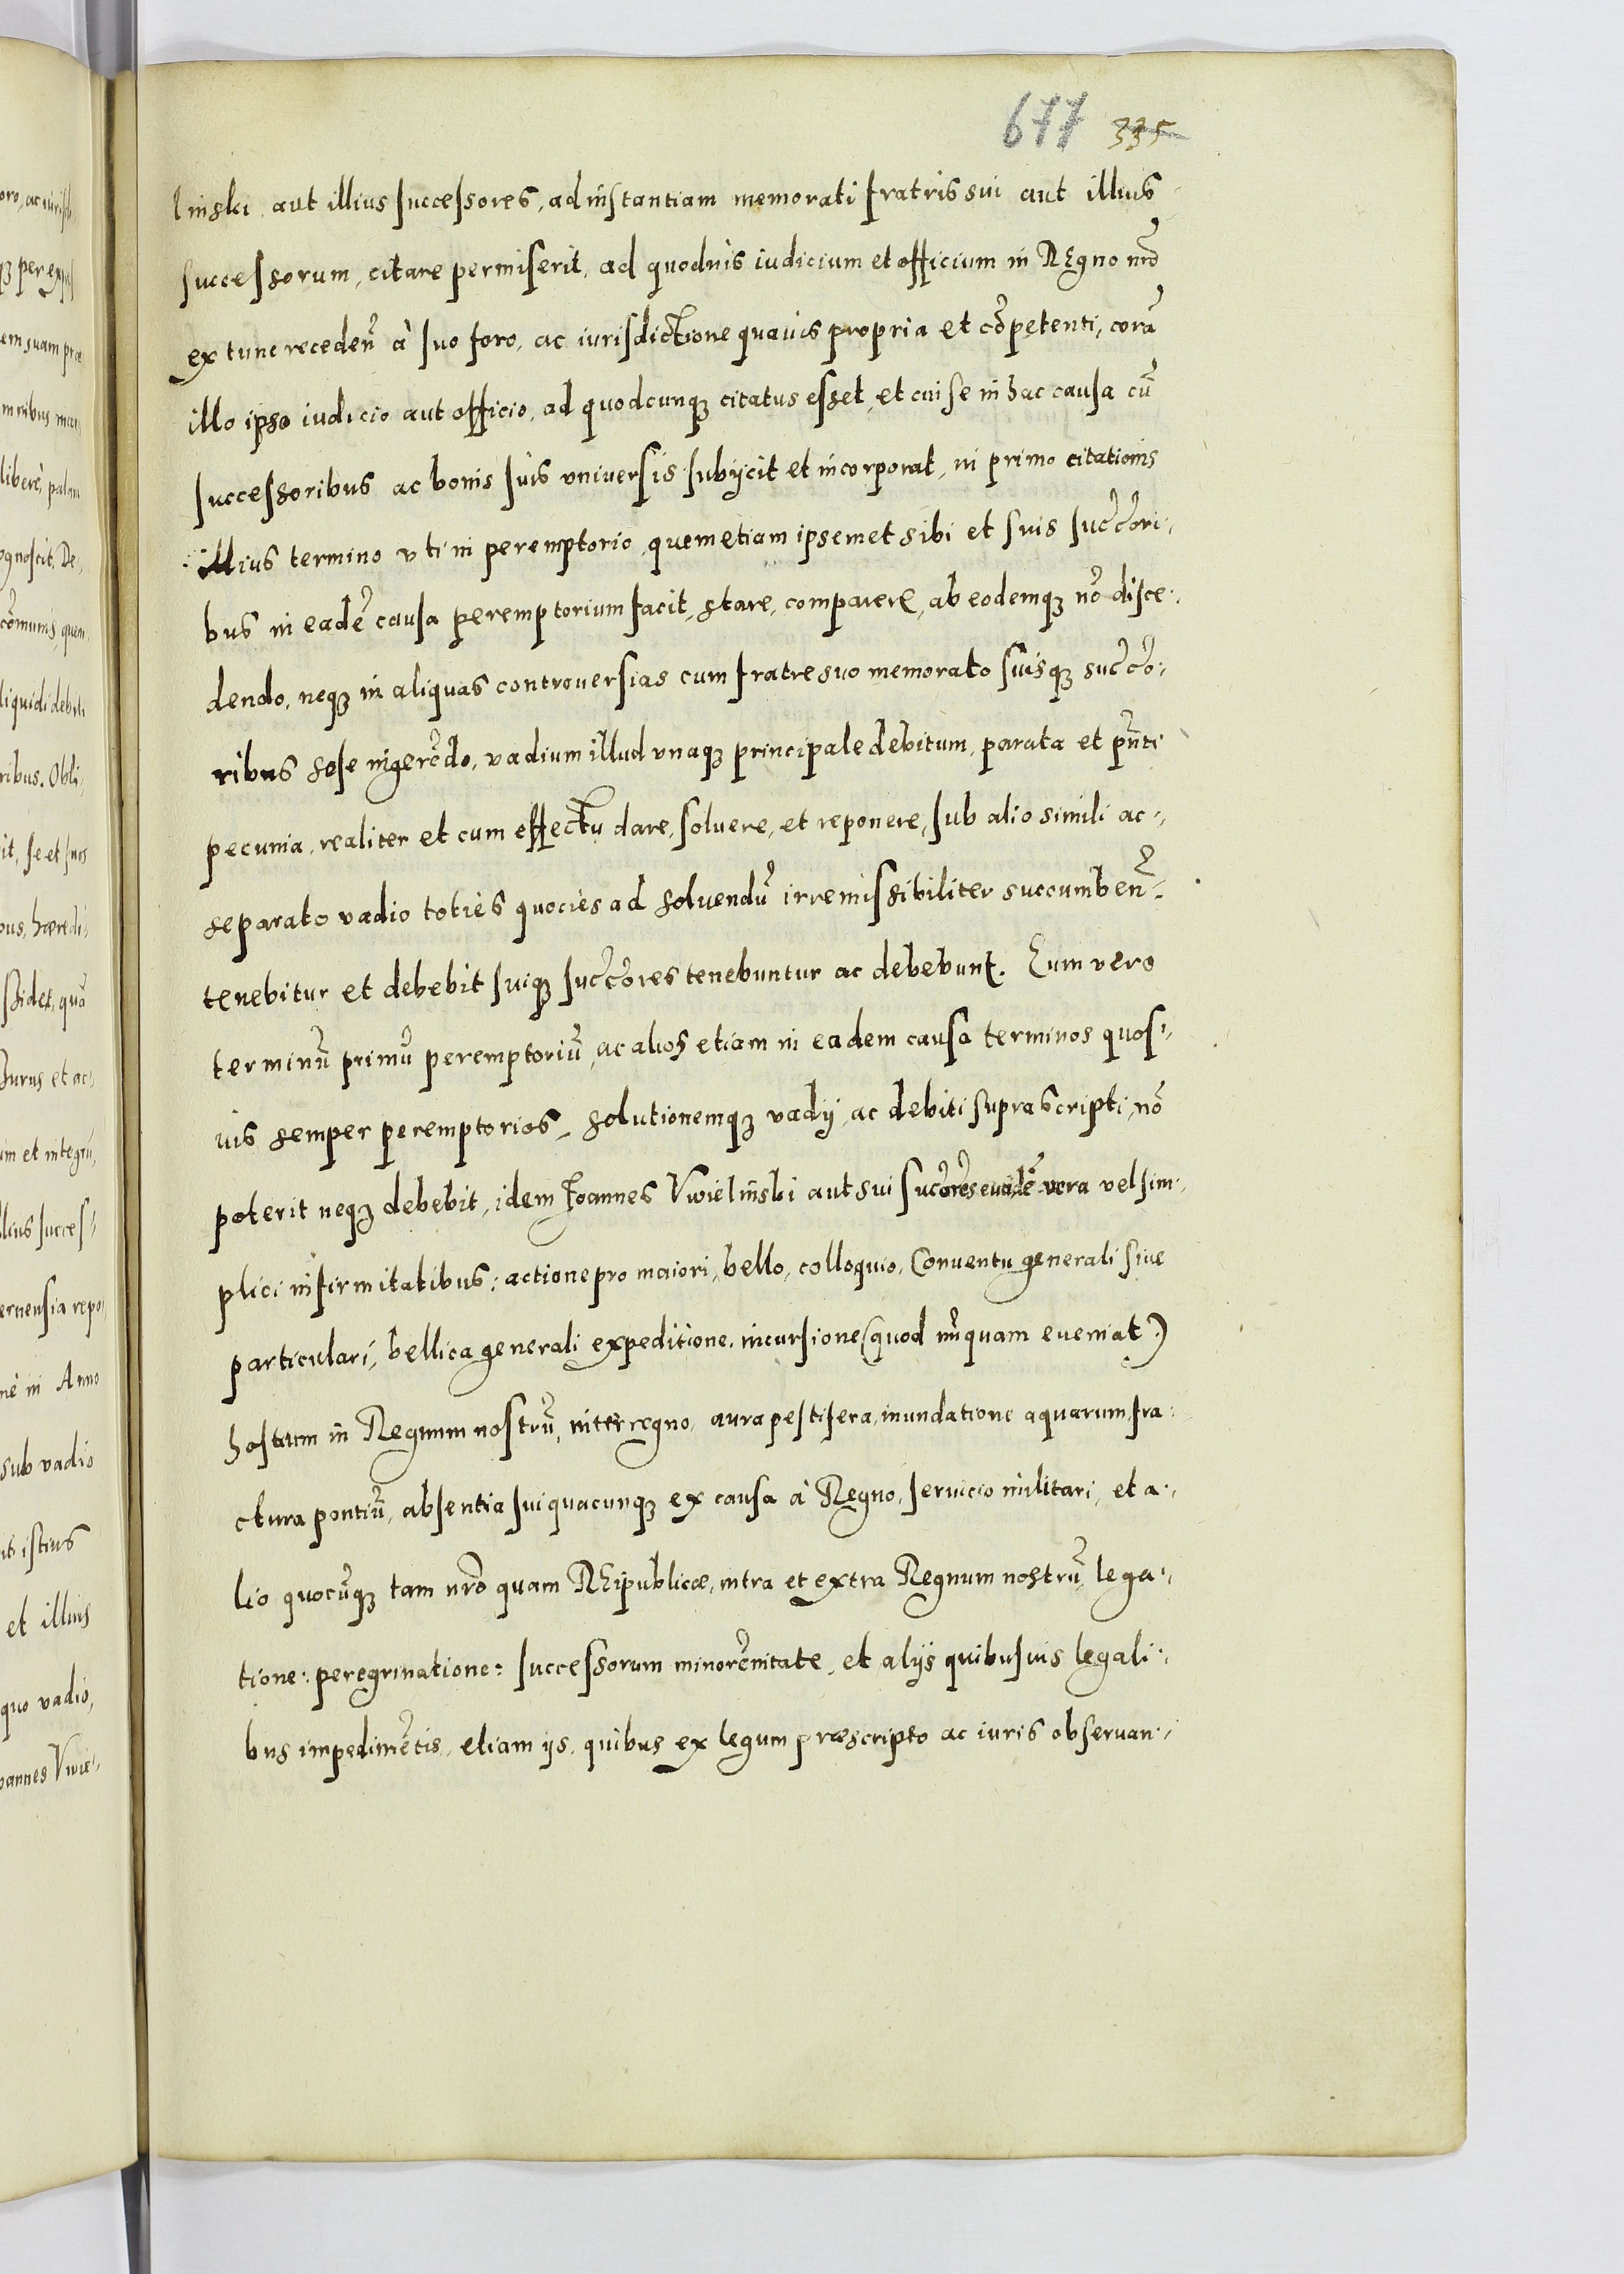 677 335
linski aut illius successores, ad instantiam memorati fratris sui aut illius
successorum, citare permiserit, ad quoduis iudicium et officium in REgno nrõ
ex tunc recedeñ à suo foro, ac iurisdictione quauis propria et cõpetenti, corã
illo ipso iudicio aut officio, ad quodcunqꝫ citatus esset, et cui se in hac causa cũ
successoribus ac bonis suis vniuersis subijcit et incorporat, in primo citationis
illius termino vti in peremptorio, quem etiam ipsemet sibi et suis succcõri-
bus in eadẽ causa peremptorium facit, stare, comparere, ab eodemqꝫ nõ disce-
dendo, neqꝫ in aliquas controuersias cum fratre suo memorato suisqꝫ succcõ-
ribus sese ingerẽdo, vadium illud vnaqꝫ principale debitum, parata et pñti
pecunia, realiter et cum effectu dare, soluere, et reponere, sub alio simili ac-
separato vadio toties quocies ad soluendũ irremissibiliter succumbeñ-
tenebitur et debebit suiqꝫ succcõres tenebuntur ac debebunt. Eum vero
terminũ primũ peremptoriũ, ac alios etiam in eadem causa terminos quos-
uis semper peremptorios, solutionemqꝫ vadij, ac debiti suprascripti, nõ
poterit neqꝫ debebit, idem Joannes Vwielinski aut sui succõres euadẽ vera vel sim-
plici infirmitatibus: actione pro maiori, bello, colloquio, Conuentu generali siue
particulari, bellica generali expeditione, incursione (quod nũquam eueniat)
hostium in Regnum nostrũ, interregno, aura pestifera, inundatione aquarum, fra-
ctura pontiũ, absentia sui quacunqꝫ ex causa à Regno, seruicio militari, et a-
lio quocũqꝫ tam nrõ quam REipublicæ, intra et extra Regnum nostrũ, lega-
tione: peregrinatione: successorum minorẽnitate, et alijs quibusuis legali-
bus impedimẽtis, etiam ijs, quibus ex legum præscripto ac iuris obseruan-